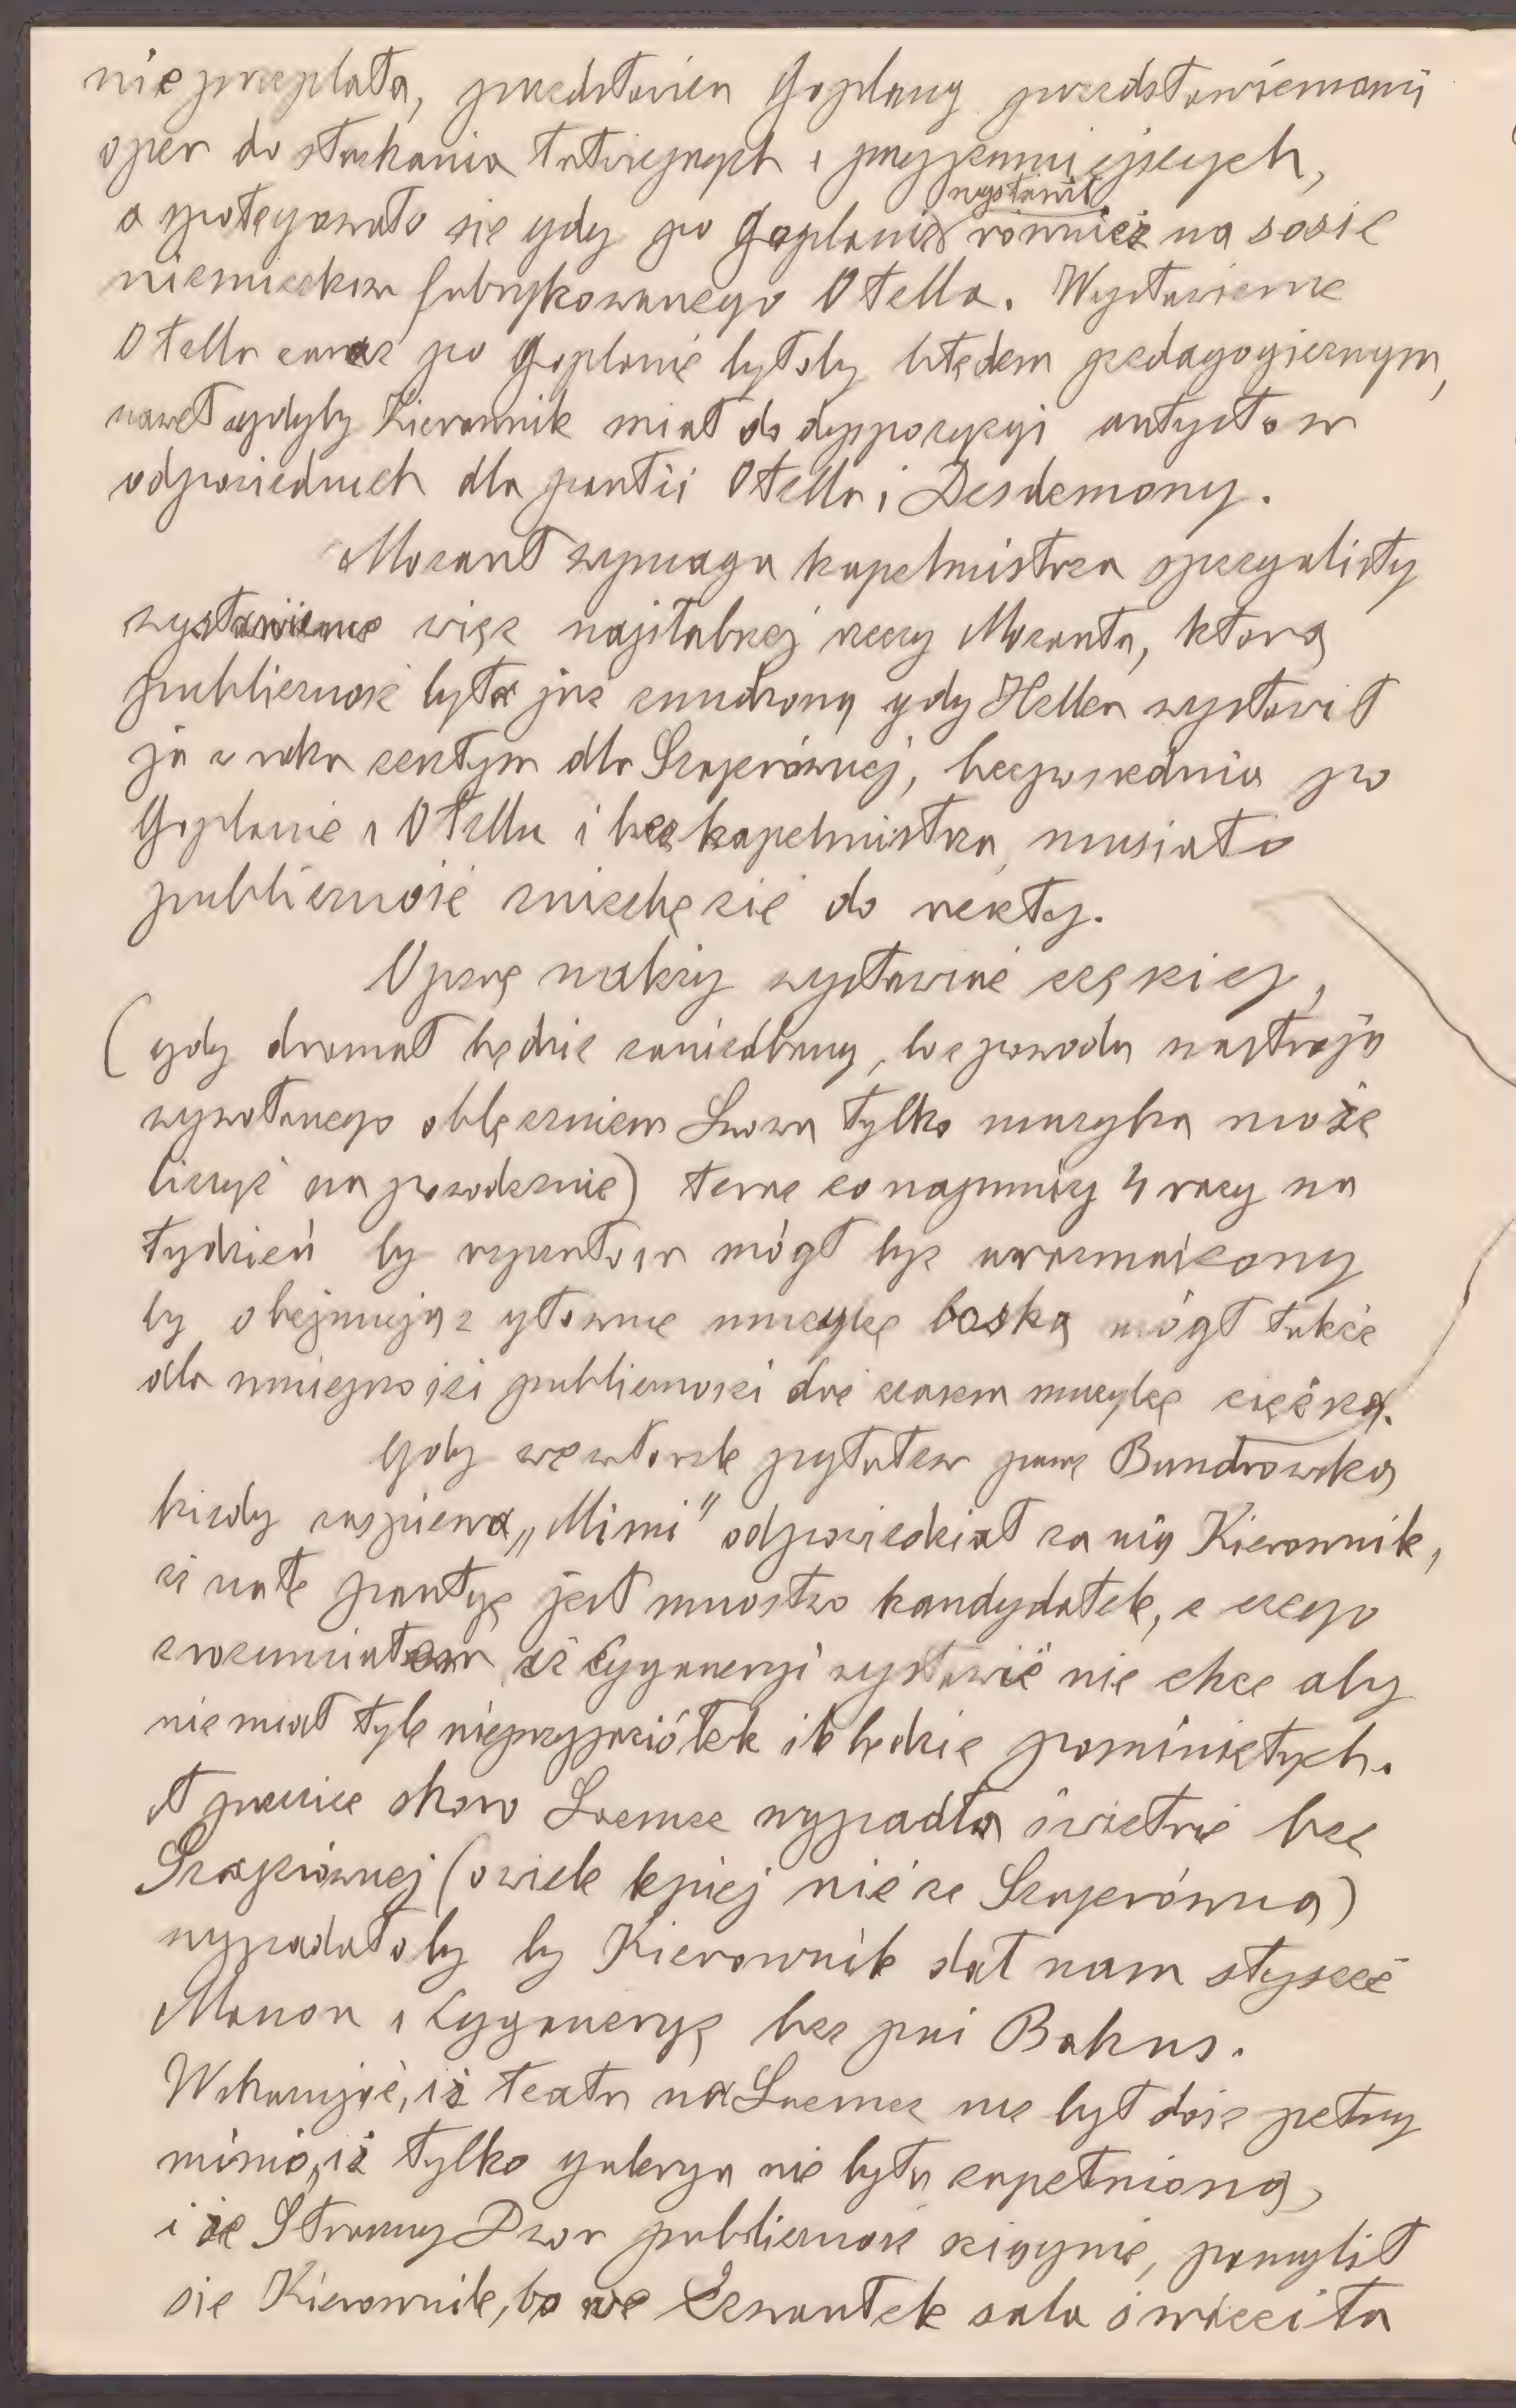 nie przeplata, przedstawien Goplany przedstawieniami
oper do słuchania łatwiejszych i przyjemniejszych,
a spotęgowało się gdy po Goplanie wystawił również na sosie
niemieckim fabrykowanego Otella. Wystawienie
Otella zaraz po Goplanie byłoby błędem pedagogicznym,
nawet gdyby Kierownik miał do dyspozycyi artystów
odpowiednich dla partii Otella i Desdemony.
Mozart wymaga kapelmistrza specyalisty
wystawienie więc najsłabszej rzeczy Mozarta, którą
publicznosć była już znudzoną gdy Heller wystawił
ją z rokiem dla Szajerównej, bezposrednio po
Goplanie i Otellu i bez kapelmistrza, musiało
publicznosć zniechęcić do reszty.
Operę należy wystawiać częściej,
(gdy dramat będzie zaniedbany, bo z powodu nastroju
wywołanego oblężeniem Lwowa tylko muzyka może
liczyć na powodzenie) teraz conajmniej 4 razy na
tydzień by repertoar mógł być urozmaicony
by obejmując głownie muzykę boską mógł także
dla mniejszości publicznosci dać czasem muzykę ciężką.
Gdy we wtorek pytałem panę Bandrowską
kiedy zaspiewa „Mimi" odpowiedział za nią Kierownik,
iż na tę partyę jest mnostwo kandydatek, z czego
zrozumiałem iż Cyganeryi wystawić nie chce aby
nie miał tyle nieprzyjaciółek ile będzie pominiętych.
A przecież skoro Loemze wypadła świetnie bez
Szajerównej (o wiele lepiej niż ze Szajerówną)
wypadałoby by Kierownik dał nam słyszeć
Manon i Cyganeryę bez pni Bakus.
Wskazując, iż teatr na Loemze nie był dosć pełny
mimo, iż tylko galerya nie była zapełnioną,
i że Straszny Dwor publicznosć sciągnie, pomylił
się Kierownik, bo we Czwartek sala świeciła